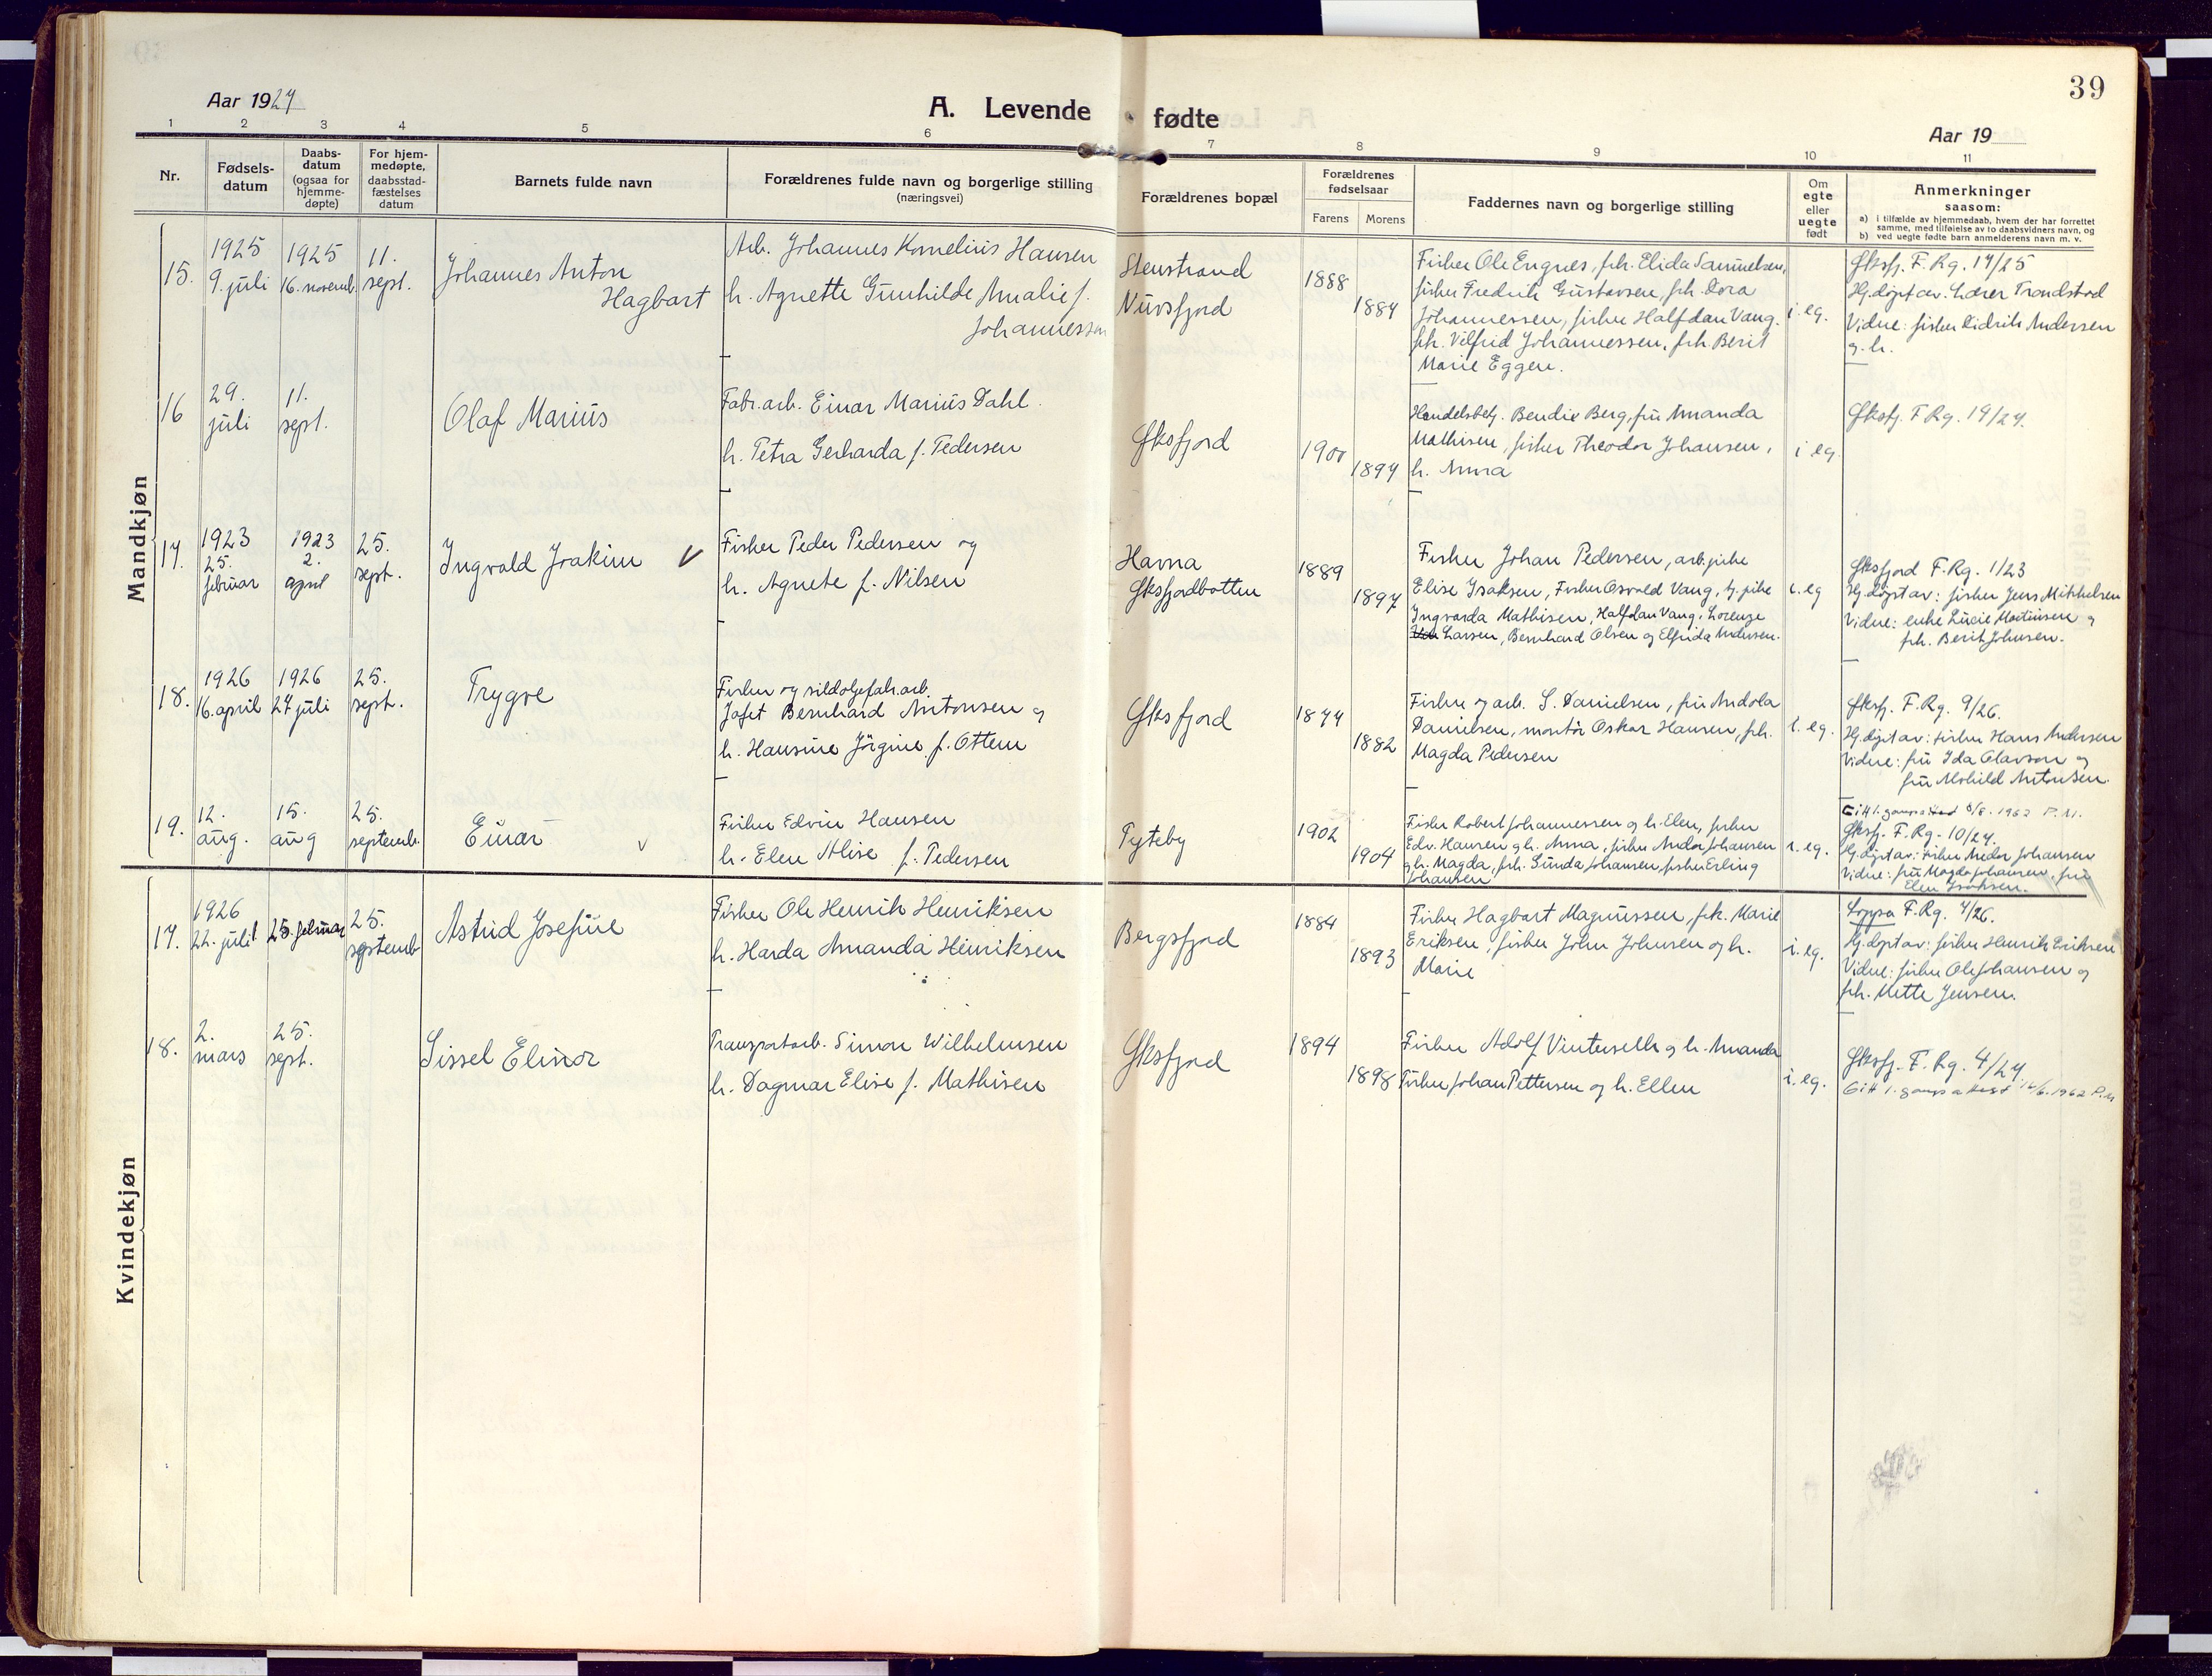 39
Aar 1927
A. Levende fødte
Aar 19
1 2 3 4 5 6 7 8 9 10 11
Nr.
Fødsels-
datum
Daabs-
datum
(ogsaa for
hjemme-
døpte)
For hjem-
medøpte,
daabsstad-
fæstelses
datum
Barnets fulde navn
Forældrenes fulde navn og borgerlige stilling
(næringsvei)
Forældrenes bopæl
Forældrenes
fødselsaar
Farens Morens
Faddernes navn og borgerlige stilling
Om
egte
eller
uegte
født
Anmerkninger
saasom:
a) i tilfælde av hjemmedaab, hvem der har forrettet
samme, med tilføielse av to daabsvidners navn, og
b) ved uegte fødte barn anmelderens navn m. v.
Mandkjøn
15.
1925
9. juli
1925
16. novemb.
11.
sept.
Johannes Anton
Hagbart
Arb. Johannes Kornelius Hansen
h. Agnette Gunhilde Amalie f.
Johannessen
Stenstrand
Nuvsfjord
1888
1884
Fisker Ole Engnes, frk. Elida Samuelsen,
fisker Fredrik Gustavsen, frk. Dora
Johannessen, fisker Halfdan Vang.
frk. Vilfrid Johannessen, frk. Berit
Marie Eggen.
i eg.
Øksfj. F. Rg. 17/25
Hj. døpt av. Lærer Trondstad
Vidne: fisker Didrik Andersen
og h.
16
29.
juli
11.
sept.
Olaf Marius
Fabr. arb. Einar Marius Dahl.
h. Petra Gerharda f. Pedersen
Øksfjord
1900
1897
Handelsbetj. Bendix Berg, fru Amanda
Mathisen, fisker Theodor Johansen,
h. Anna
i eg.
Øksfj. F. Rg. 19/27.
17.
1923
25.
februar
1923
2.
april
25.
sept.
Ingvald Joakim V
Fisker Peder Pedersen og
h. Agnete f. Nilsen
Havna
Øksfjordbotten
1889
1897
Fisker Johan Pedersen, arb. pike
Elise Isaksen, Fisker Osvald Vang, tj. pike
Ingvarda Mathisen, Halfdan Vang, Lorenze
Larsen, Bernhard Olsen og Elfrida Andersen.
i. eg
Øksfjord F. Rg. 1/23
Hj. døpt av: fisker Jens Mikkelsen
Vidne: enke Lucie Martinsen og
frk. Berit Johnsen.
18.
1926
16. april
1926
27. juli
25.
sept.
Trygve
Fisker og sildoljefab. arb.
Jafet Bernhard Antonsen og
h. Hansine Jörgine f. Ottem
Øksfjord
1877
1882
Fisker og arb. S. Danielsen, fru Andola
Danielsen, montør Oskar Hansen, frk.
Magda Pedersen
i. eg.
Øksfj. F. Rg. 9/26.
Hj. døpt av: fisker Hans Andersen
Vidne: fru Ida Olavson og
fru Alvhild Antonsen.
19.
12.
aug.
15.
aug
25.
septemb.
Einar v
Fisker Edvin Hansen
h. Elen Alise f. Pedersen
Tyteby
1902
1904
Fisker Robert Johannessen og h. Elen, fisker
Edv. Hansen og h. Anna, fisker Andor Johansen
og h. Magda, frk. Gunda Johansen, fisker Erling
Johansen
i. eg.
Gitt 1. gangs attest 1962 P.M.
Øksfj. F. Rg. 10/27.
Hj. døpt av: fisker Andor Johansen
Vidne: fru Magda Johansen, fru
Elen Isaksen.
Kvindekjøn
17.
1926
22. juli
25. februar
25.
septemb
Astrid Josefine
Fisker Ole Henrik Henriksen
h. Harda Amanda Henriksen
Bergsfjord
1884
1893
Fisker Hagbart Magnussen, frk. Marie
Eriksen, fisker John Johnsen og h.
Marie
i. eg.
Loppa F. Rg. 7/26.
Hj. døpt av: fisker Henrik Eriksen
Vidne: fisker Ole Johansen og
frk. Mette Jensen.
18.
2.
mars
25.
sept.
Sissel Elinor
Transportarb. Simon Wilhelmsen
h. Dagmar Elise f. Mathisen
Øksfjord
1894
1898
Fisker Adolf Vinterselb og h. Amanda
Fisker Johan Pettersen og h. Ellen
i. eg.
Øksfj. F. Rg. 4/27
Gitt 1. gangs attest 1962 P.M